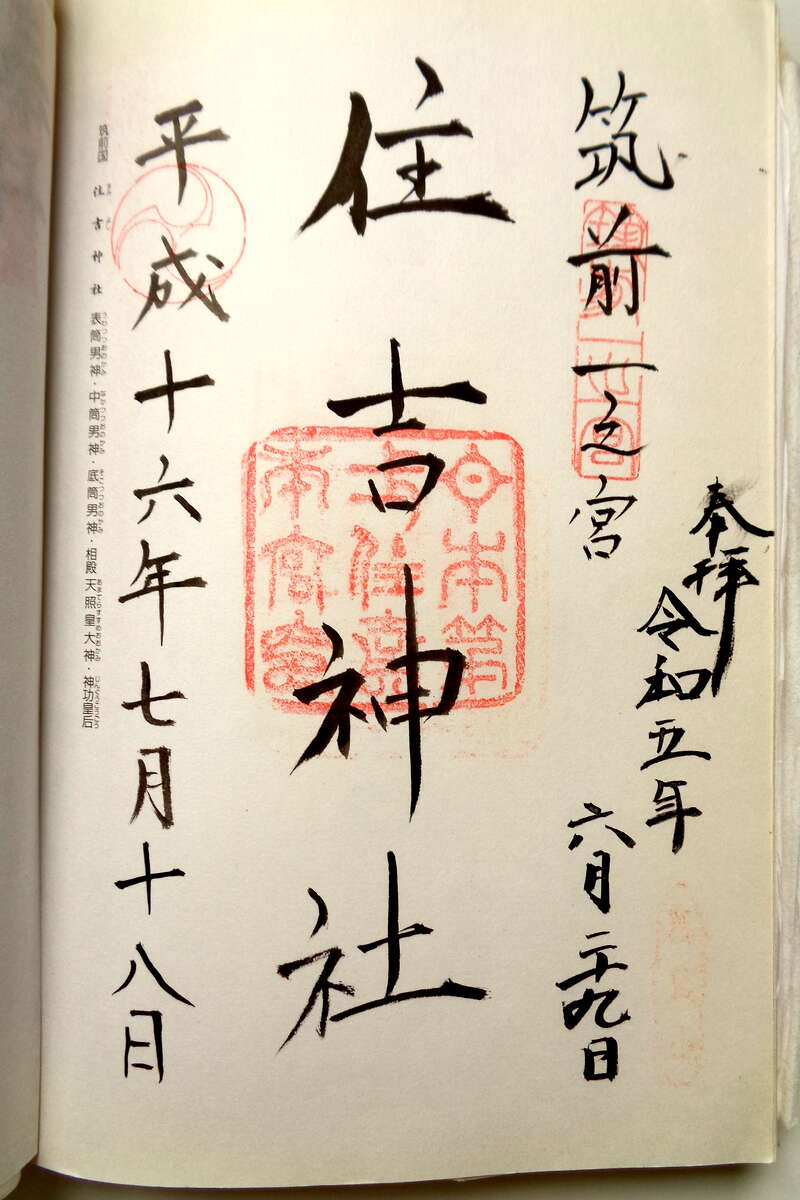 奉拝
令和五年
六月二十九日
筑前一之宮
住吉神社
平成十六年七月十八日
筑前国 住吉神社 表筒男神・中筒男神・底筒男神・相殿 天照皇大神・神功皇后